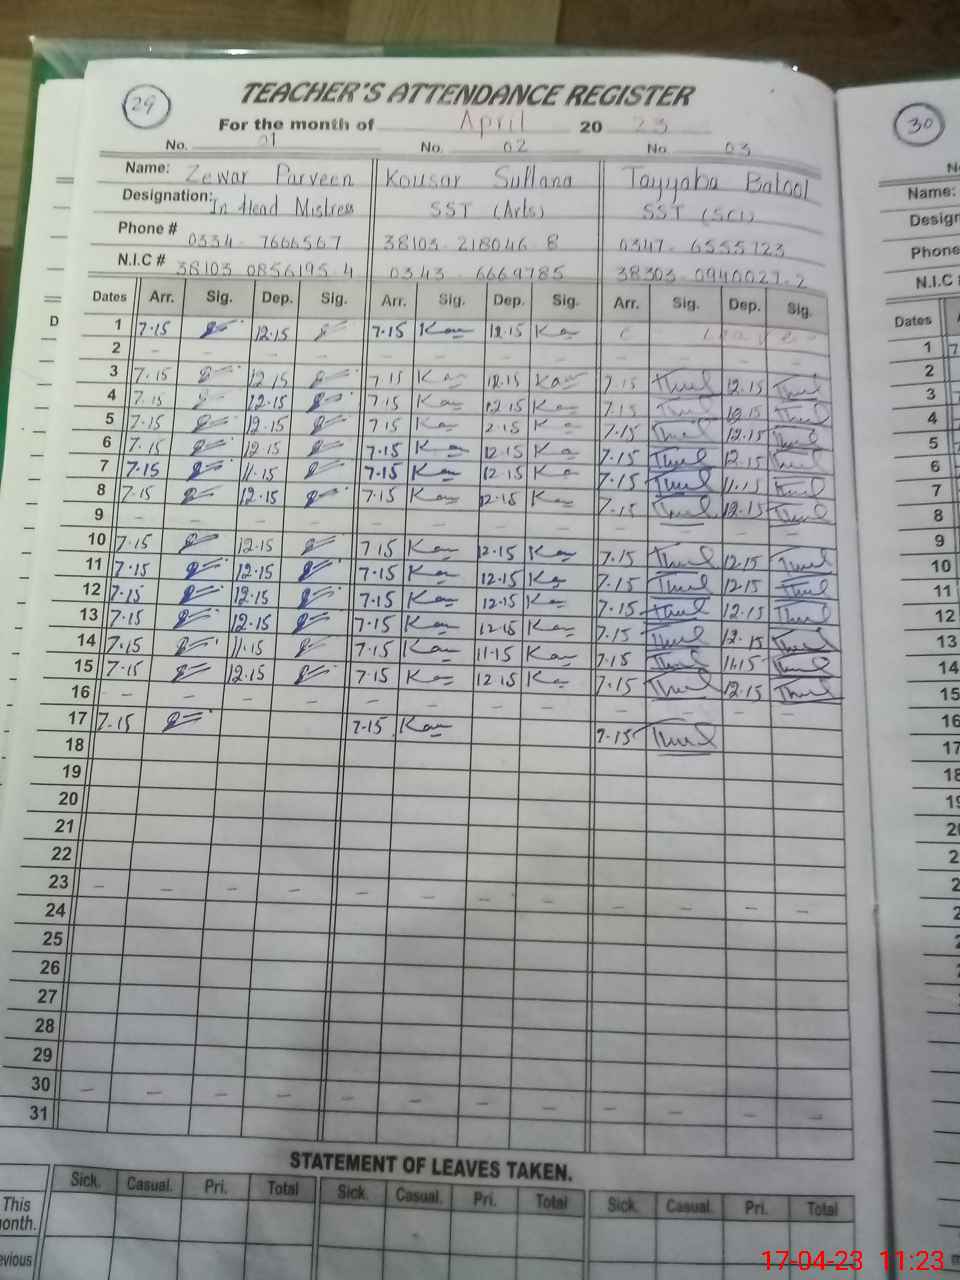 29
TEACHER'S ATTENDANCE REGISTER
30
For the month of April 20 23
No. 01 No. 02 No. 03
Name: Zewar Parveen Kousar Sultana Tayyaba Batool
Designation: In Head Mistress SST (Arts) SST (SCI)
Phone # 0334-7666567 38103-218046-8 0347-6555723
N.I.C # 38103 0856195-4 0343-6669785 38303-0940027-2
Dates Arr. Sig. Dep. Sig. Arr. Sig. Dep. Sig. Arr. Sig. Dep. Sig.
1 7.15 12.15 7.15 Kou 12.15 Kou Leave
2 - - - - - - - - - - - -
3 7.15 12.15 7.15 Kou 12.15 Kou 7.15 12.15
4 7.15 12.15 7.15 Kou 12.15 Kou 7.15 12.15
5 7.15 12.15 7.15 Kou 2.15 Kou 7.15 12.15
6 7.15 12.15 7.15 Kou 12.15 Kou 7.15 12.15
7 7.15 11.15 7.15 Kou 12.15 Kou 7.15 11.15
8 7.15 12.15 7.15 Kou 12.15 Kou 7.15 12.15
9 - - - - - - - - - - - -
10 7.15 12.15 7.15 Kou 12.15 Kou 7.15 12.15
11 7.15 12.15 7.15 Kou 12.15 Kou 7.15 12.15
12 7.15 12.15 7.15 Kou 12.15 Kou 7.15 12.15
13 7.15 12.15 7.15 Kou 12.15 Kou 7.15 12.15
14 7.15 11.15 7.15 Kou 11.15 Kou 7.15 11.15
15 7.15 12.15 7.15 Kou 12.15 Kou 7.15 12.15
16 - - - - - - - - - - - -
17 7.15 7.15 Kou 7.15
18
19
20
21
22
23 - - - - - - - - - - - -
24
25
26
27
28
29
30 - - - - - - - - - - - -
31
STATEMENT OF LEAVES TAKEN.
Sick. Casual. Pri. Total Sick. Casual. Pri. Total Sick. Casual. Pri. Total
This
onth.
evious
Name:
Design
Phone
N.I.C
Dates
1
2
3
4
5
6
7
8
9
10
11
12
13
14
15
16
17
18
17-04-23 11:23